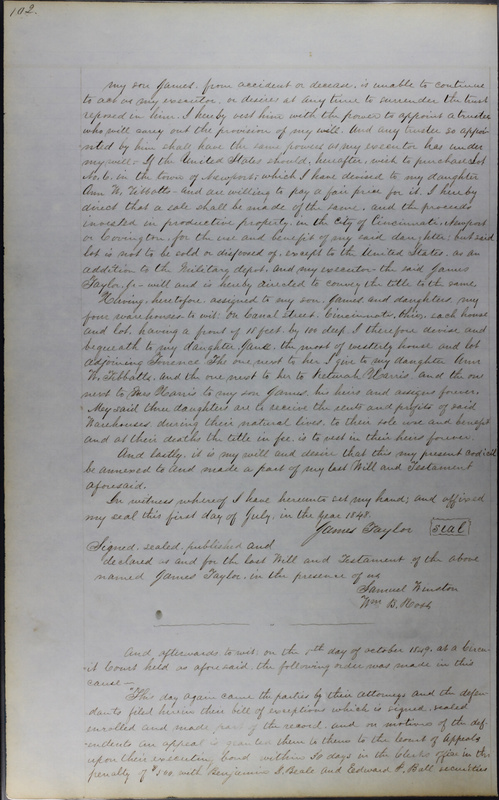 102.
my son James. from accident or decease. is unable to continue
to act as my executor, or desires at any time to surrender the trust
reposed in him. I hereby vest him with the power to appoint a trustee
who will carry out the provision of my will. And any trustee so appoi-
nted by him shall have the same powers as my executor has under
my will - If the United States should, hereafter, wish to purchase Lot
No. 6. in the town of Newport; which I have devised to my daughter
Ann W. Tibbatts - and are willing to pay a fair price for it. I hereby
direct that a sale shall be made of the same. and the proceeds
invested in productive property, in the City of Cincinnati, Newport
or Covington, for the use and benefit of my said daughter, but said
lot is not to be sold or disposed of, except to the United States. as an
addition to the Military depot, and my executor - the said James
Taylor, Jr - will and is hereby directed to convey the title to the same.
Having, heretofore, assigned to my son, James and daughters, my
four warehouses. to wit. On Canal Street. Cincinnati, Ohio, each house
and lot, having a front of 18 feet. by 100 deep. I therefore devise and
bequeath to my daughter Jane, the most westerly house and lot
adjoining The one next to her, I give to my daughter Ann
W. Tibbatts. and the one next to her to Keturah Harris, and the one
next to Mrs Harris to my son James, his heirs and assigns forever.
My said three daughters are to receive the rents and profits of said
Warehouses, during their natural lives, to their sole use and benefit
and at their deaths the title in fee, is to vest in their heirs forever.
And lastly, it is my will and desire that this my present codicil
be annexed to and made a part of my last Will and Testament
aforesaid.
In witness whereof I have hereunto set my hand; and affixed
my seal this first day of July, in the year 1848.
James Taylor seal
Signed, sealed, published and
declared as and for the last Will and Testament of the above
named James Taylor, in the presence of us
Samuel Winston
Wm B. Ross
And afterwards to wit: on the day of october 1849. at a Circu-
it Court held as aforesaid. the following order was made in this
cause -
"This day again came the parties by their attorneys and the defen-
dants filed herein their bill of exceptions which is signed, sealed
enrolled and made part of the record. and on motions of the def-
endants an appeal is granted them to them to the Court of Appeals
upon their executing bond within 30 days in the Clerks office in the
penalty of $100 with Benjamin D. Beale and Edward F. Ball securities